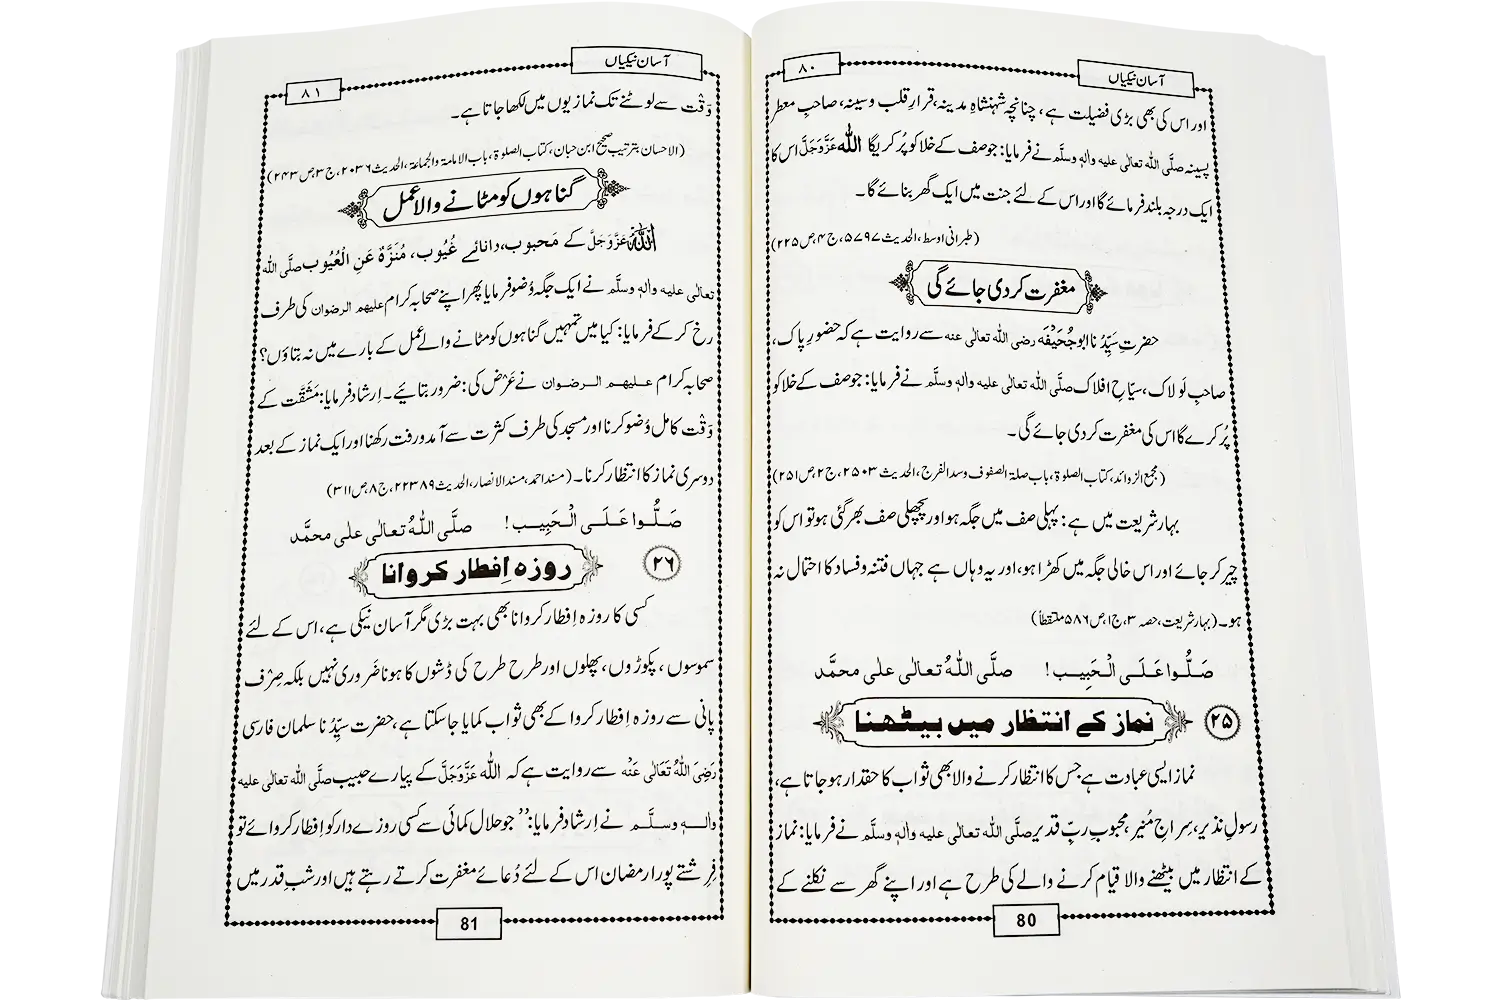 ۸۰
آسان نیکیاں
اور اس کی بھی بڑی فضیلت ہے، چنانچہ شہنشاہِ مدینہ، قرارِ قلب و سینہ، صاحبِ معطر
پسینہ صلَّی اللہ تعالٰی علیہ واٰلہٖ وسلَّم نے فرمایا: جو صف کے خلا کو پُر کریگا اللہ عَزَّوَجَلَّ اس کا
ایک درجہ بلند فرمائے گا اور اس کے لئے جنت میں ایک گھر بنائے گا۔
(طبرانی اوسط، الحدیث ۵۷۹۷، ج۴، ص۲۲۵)
مغفرت کر دی جائے گی
حضرتِ سیِّدُنا ابو جُحَیْفَہ رضی اللہ تعالٰی عنہ سے روایت ہے کہ حضورِ پاک،
صاحبِ لَولاک، سیّاحِ افلاک صلَّی اللہ تعالٰی علیہ واٰلہٖ وسلَّم نے فرمایا: جو صف کے خلا کو
پُر کرے گا اس کی مغفرت کر دی جائے گی۔
(مجمع الزوائد، کتاب الصلوۃ، باب صلۃ الصفوف وسد الفرج، الحدیث ۲۵۰۳، ج۲، ص۲۵۱)
بہارِ شریعت میں ہے: پہلی صف میں جگہ ہو اور پچھلی صف بھر گئی ہو تو اس کو
چیر کر جائے اور اس خالی جگہ میں کھڑا ہو، اور یہ وہاں ہے جہاں فتنہ و فساد کا احتمال نہ
ہو۔ (بہار شریعت، حصہ ۳، ج۱، ص۵۸۶ ملتقطاً)
صَلُّوا عَلَی الْحَبِیب! صلَّی اللہُ تعالٰی علٰی محمَّد
۲۵ نماز کے انتظار میں بیٹھنا
نماز ایسی عبادت ہے جس کا انتظار کرنے والا بھی ثواب کا حقدار ہو جاتا ہے،
رسولِ نذیر، سِراجِ مُنیر، محبوبِ ربِّ قدیر صلَّی اللہ تعالٰی علیہ واٰلہٖ وسلَّم نے فرمایا: نماز
کے انتظار میں بیٹھنے والا قیام کرنے والے کی طرح ہے اور اپنے گھر سے نکلنے کے
80
آسان نیکیاں
۸۱
وَقْت سے لوٹنے تک نمازیوں میں لکھا جاتا ہے۔
(الاحسان بترتیب صحیح ابن حبان، کتاب الصلوۃ، باب الامامۃ والجماعۃ، الحدیث ۲۰۳۶، ج۳، ص۲۴۳)
گناہوں کو مٹانے والا عمل
اللہ عَزَّوَجَلَّ کے مَحبوب، دانائے غُیُوب، مُنَزَّہٌ عَنِ الْعُیُوب صلَّی اللہ
تعالٰی علیہ واٰلہٖ وسلَّم نے ایک جگہ وُضو فرمایا پھر اپنے صحابہ کرام علیہم الرضوان کی طرف
رخ کر کے فرمایا: کیا میں تمہیں گناہوں کو مٹانے والے عمل کے بارے میں نہ بتاؤں؟
صحابہ کرام علیہم الرضوان نے عَرْض کی: ضرور بتائیے۔ اِرشاد فرمایا: مَشَقَّت کے
وَقْت کامل وُضو کرنا اور مسجد کی طرف کثرت سے آمد و رفت رکھنا اور ایک نماز کے بعد
دوسری نماز کا انتظار کرنا۔ (مسند احمد، مسند الانصار، الحدیث ۲۲۳۸۹، ج۸، ص۳۱۱)
صَلُّوا عَلَی الْحَبِیب! صلَّی اللہُ تعالٰی علٰی محمَّد
۲۶ روزہ اِفطار کروانا
کسی کا روزہ اِفطار کروانا بھی بہت بڑی مگر آسان نیکی ہے، اس کے لئے
سموسوں، پکوڑوں، پھلوں اور طرح طرح کی ڈشوں کا ہونا ضَروری نہیں بلکہ صِرْف
پانی سے روزہ اِفطار کروا کے بھی ثواب کمایا جا سکتا ہے، حضرت سیِّدُنا سلمان فارسی
رَضِیَ اللہُ تَعَالٰی عَنْہ سے روایت ہے کہ اللہ عَزَّوَجَلَّ کے پیارے حبیب صلَّی اللہ تعالٰی علیہ
واٰلہٖ وسلَّم نے اِرشاد فرمایا: ’’جو حلال کمائی سے کسی روزے دار کو اِفطار کروائے تو
فِرِشتے پورا رمضان اس کے لئے دُعائے مغفرت کرتے رہتے ہیں اور شب قدر میں
81